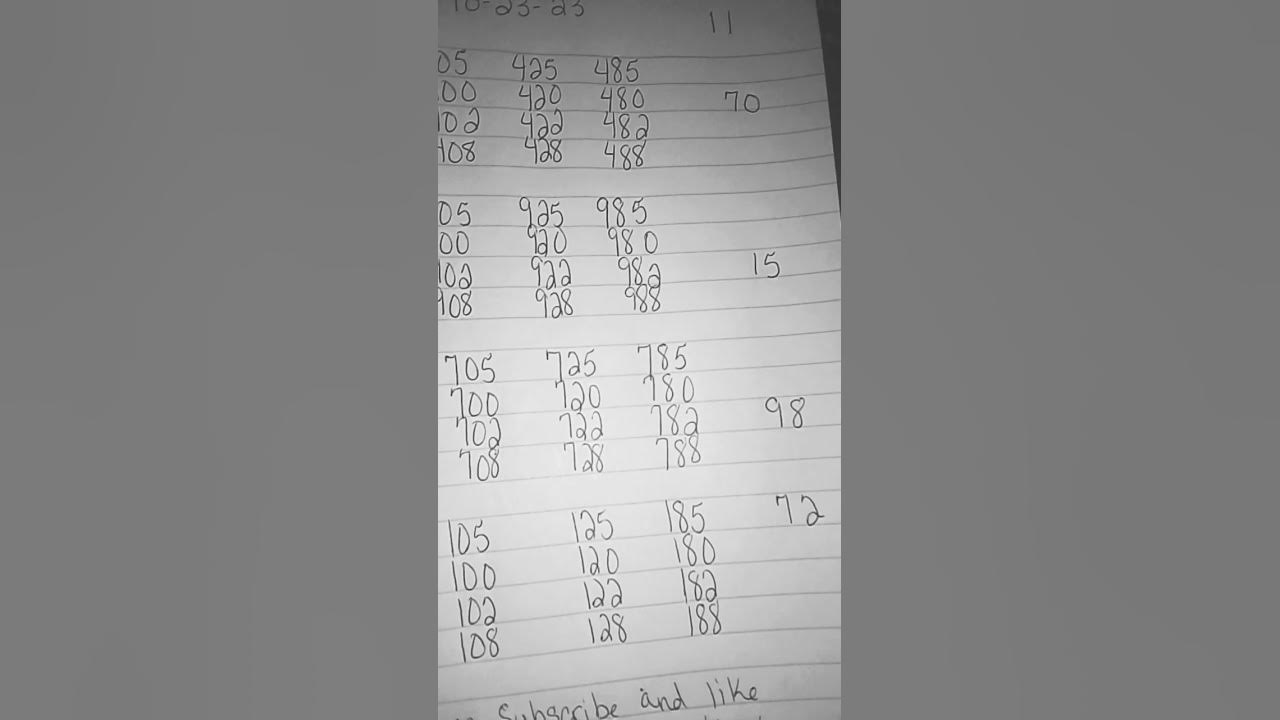 10-23-23
11
05 425 485
00 420 480 70
102 422 482
108 428 488
05 925 985
00 920 980
102 922 982 15
908 928 988
705 725 785
700 720 780
702 722 782 98
708 728 788
105 125 185 72
100 120 180
102 122 182
108 128 188
Subscribe and like